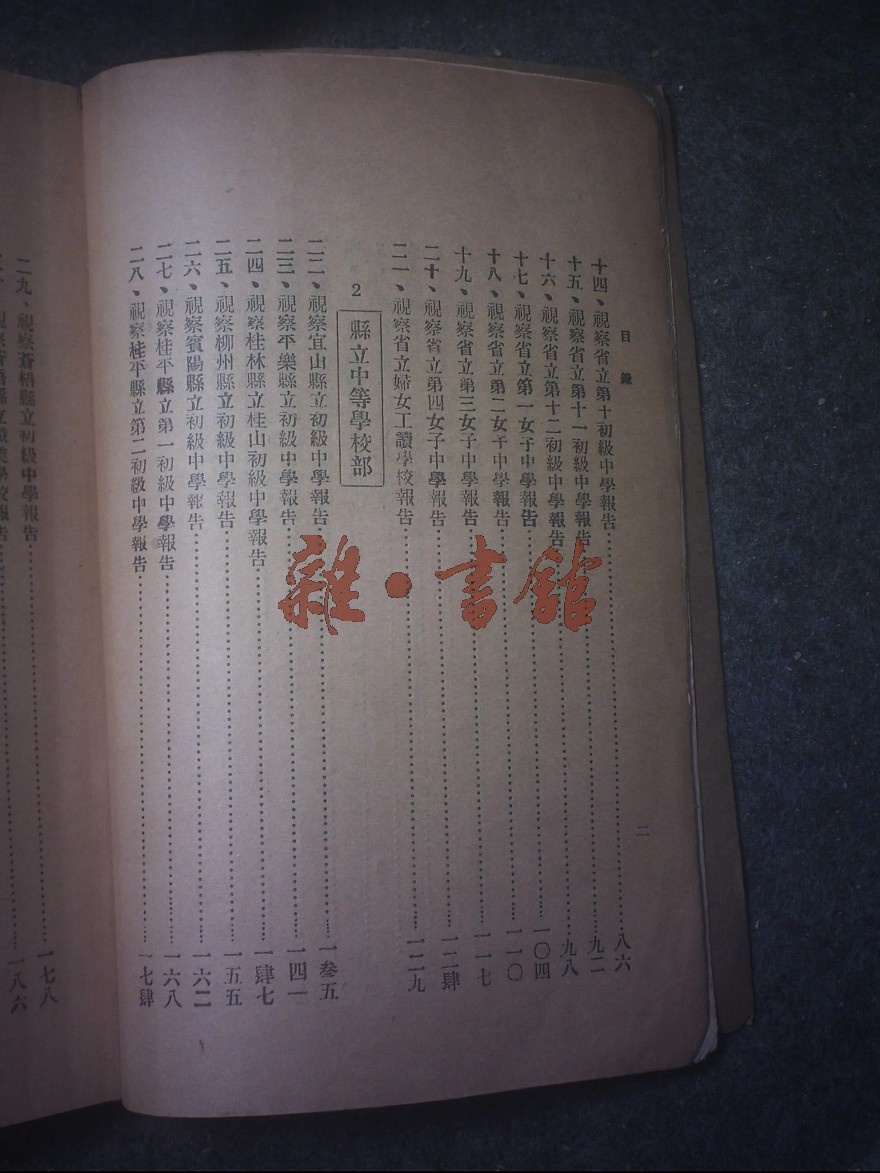 目錄
二
十四、視察省立第十初級中學報告……八六
十五、視察省立第十一初級中學報告……九二
十六、視察省立第十二初級中學報告……九八
十七、視察省立第一女子中學報告……一〇四
十八、視察省立第二女子中學報告……一一〇
十九、視察省立第三女子中學報告……一一七
二十、視察省立第四女子中學報告……一二肆
二一、視察省立婦女工讀學校報告……一二九
2 縣立中等學校部
二二、視察宜山縣立初級中學報告……一叁五
二三、視察平樂縣立初級中學報告……一四一
二四、視察桂林縣立桂山初級中學報告……一肆七
二五、視察柳州縣立初級中學報告……一五五
二六、視察賓陽縣立初級中學報告……一六二
二七、視察桂平縣立第一初級中學報告……一六八
二八、視察桂平縣立第二初級中學報告……一七肆
二九、視察蒼梧縣立初級中學報告……一七八
學校報告……一八六
雜·書館